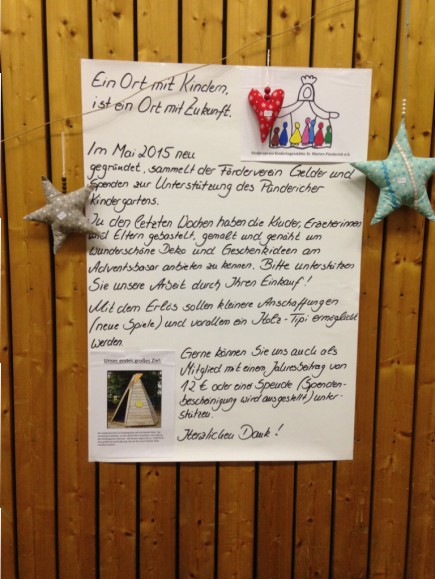 Ein Ort mit Kindern,
ist ein Ort mit Zukunft.
Im Mai 2015 neu
gegründet, sammelt der Förderverein Gelder und
Spenden zur Unterstützung des Pündericher
Kindergartens.
In den letzten Wochen haben die Kinder, Erzieherinnen
und Eltern gebastelt, gemalt und genäht um
wunderschöne Deko und Geschenkideen am
Adventsbasar anbieten zu können. Bitte unterstützen
Sie unsere Arbeit durch Ihren Einkauf!
Mit dem Erlös sollen kleinere Anschaffungen
(neue Spiele) und vorallem ein Holz-Tipi ermöglicht
werden.
Unser erstes großes Ziel:
Gerne können Sie uns auch als
Mitglied mit einem Jahresbeitrag von
12 € oder eine Spende (Spenden-
bescheinigung wird ausgestellt) unter-
stützen.
Herzlichen Dank!